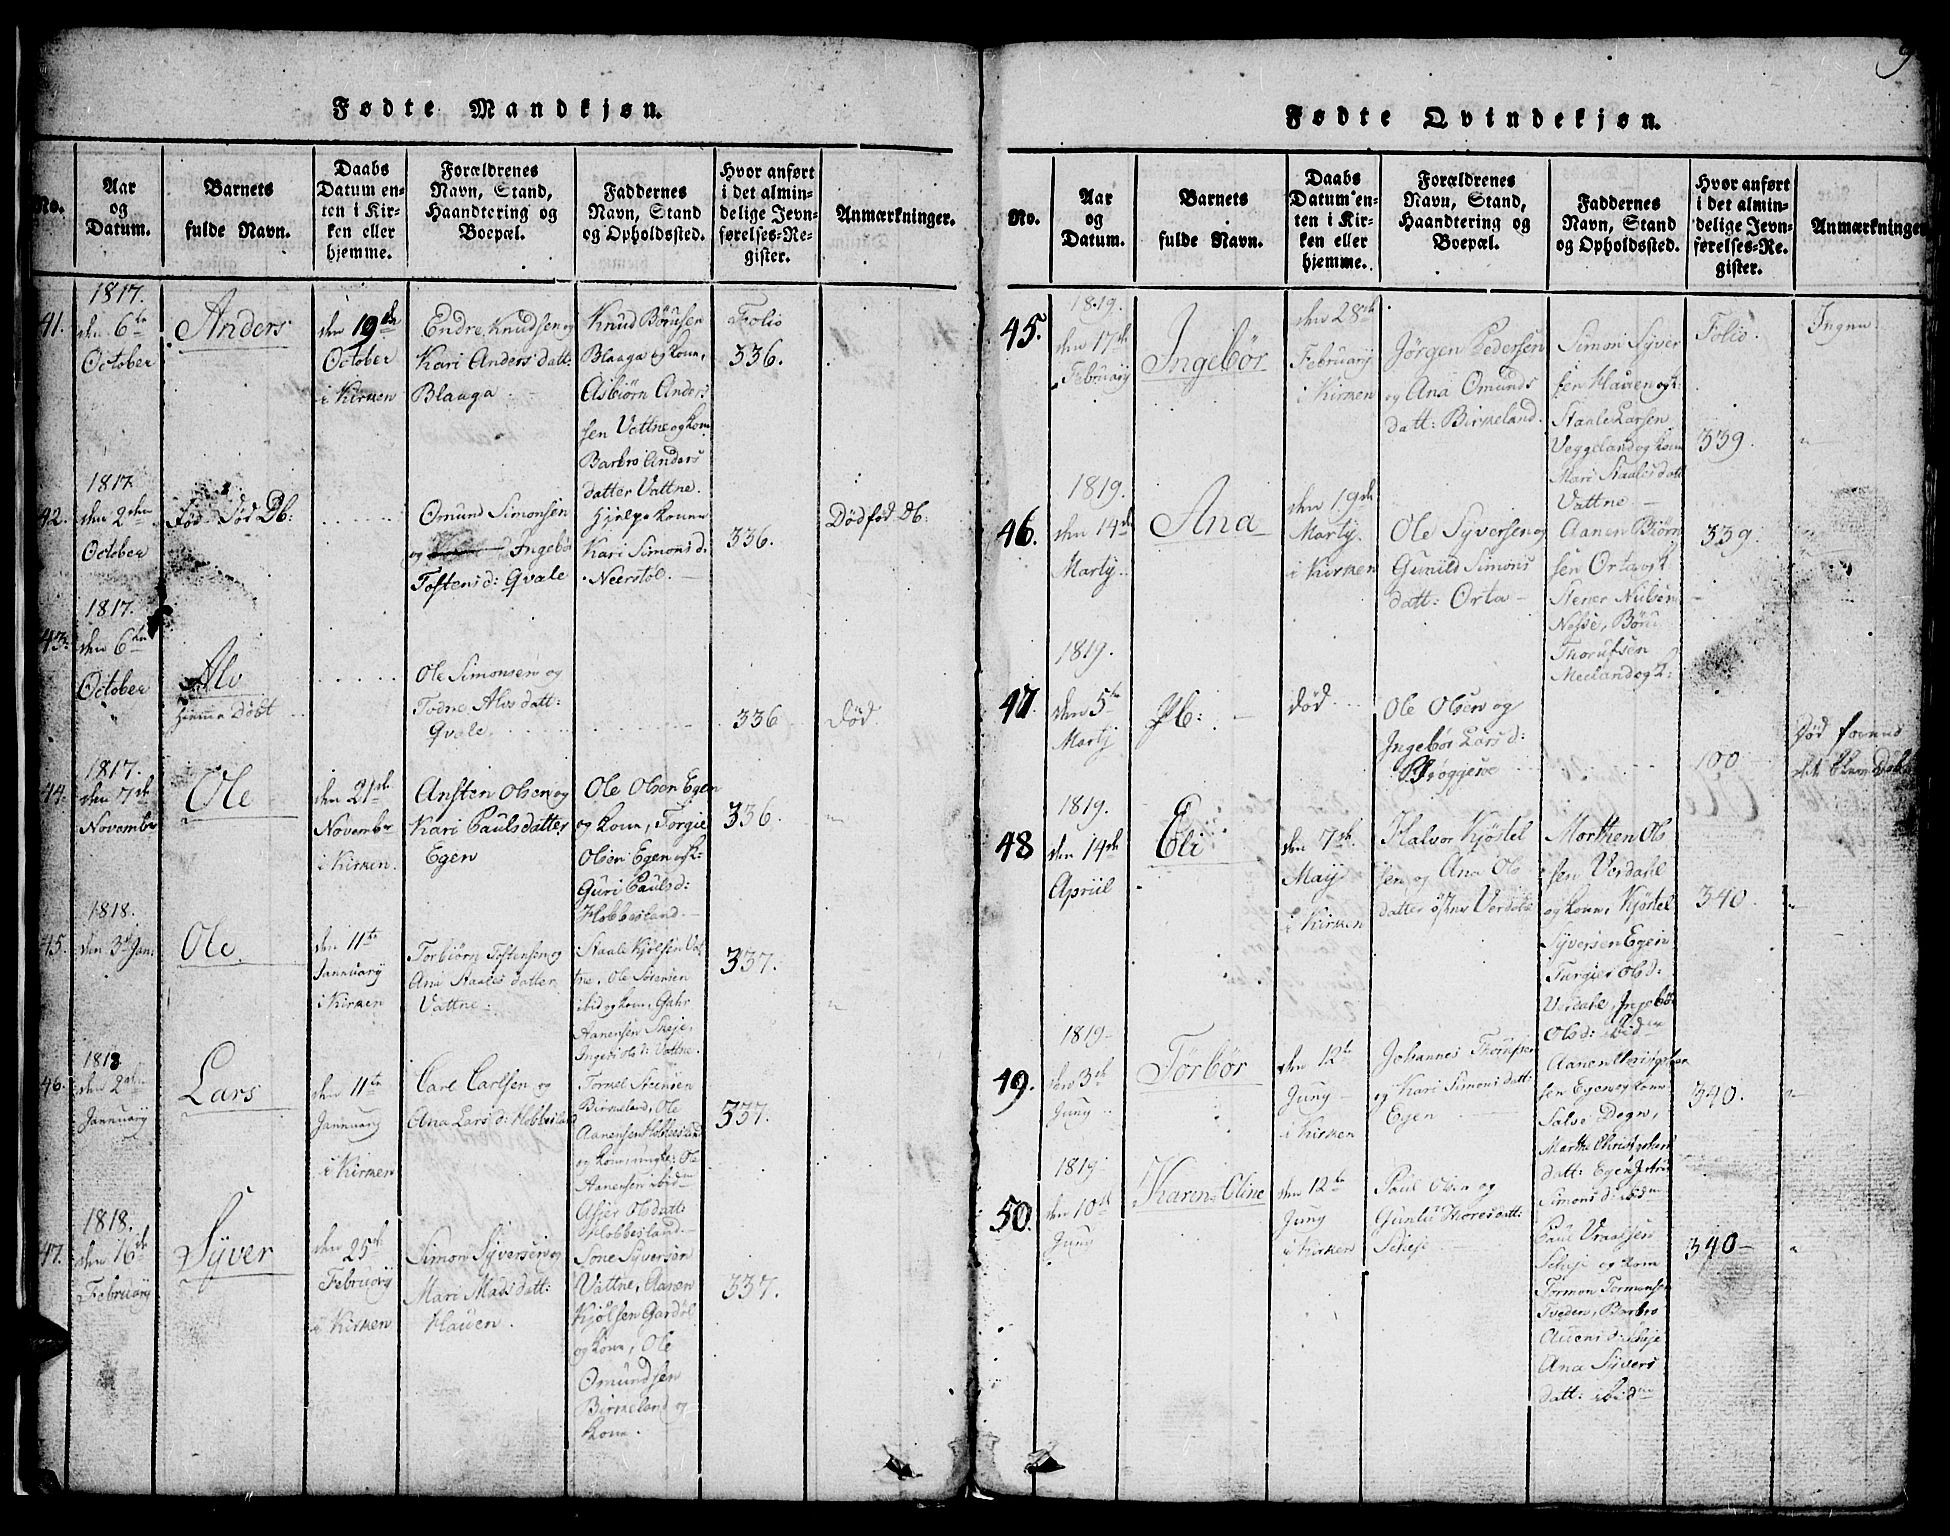 9
Fødte Mandkjøn.
No.
Aar og Datum.
Barnets fulde Navn.
Daabs Datum enten i Kirken eller hjemme.
Forældrenes Navn, Stand, Haandtering og Boepæl.
Faddernes Navn, Stand og Opholdssted.
Hvor anført i det almindelige Jevnførelses-Register.
Anmærkninger.
41.
1817.
den 6te
October
Anders
den 19de
October
i Kirken
Endre Knudsen og
Kari Andersdatt:
Blaaga
Knud Børusen
Blaaga og kone,
Asbiørn Anders
sen Vattne og kone
Barbro Anders
datter Vattne.
Folio
336.
42.
1817.
den 2den
October
Fød Død Db:
Omund Simonsen
og Ingebør
Tostensd: Qvale
Hjelpe konne
Kari Simonsd:
Neerstøl.
336.
Dødfød Db:
43.
1817.
den 6te
October
Alv
Hiemme Døbt
Ole Simonsen og
Todne Alvsdatt:
Qvale
336
død.
44.
1817.
den 7de
November
Ole
den 21de
November
i Kirken.
Ansten Olsen og
Kari Paulsdatter
Egen
Ole Olsen Egen
og kone, Torgie
Olsen Egen og k:
Guri Paulsd:
Hobbesland.
336.
45.
1818.
den 3de Jan:
Ole.
den 11te
Jannuary
i Kirken
Torbiørn Tostensen og
Ana Staalesdatter
Vattne:
Staale Kjølsen Vat
tne, Ole Sørensen
ibid og kone, Gahr
Aanensen Skeje,
Ingeri Olsd: Vattne.
337.
46.
1818
den 2den
Jannuary
Lars
den 11te
Jannuary
i Kirken
Carl Carlsen og
Ana Larsd: Hobbesland
Tormel Steensen
Birkeland, Ole
Aanensen Hobbesland
og kone, ungke: Ole
Aanensen ibidm
Asjer Olsdatt:
Hobbesland
337.
47.
1818.
den 16de
February
Syver
den 25de
February
i Kirken
Simon Syversen og
Mari Madsdatt:
Hauen.
Sone Syversen
Vattne, Aanen
Kjølsen Gardøl
og kone, Ole
Omundsen
Birkeland og
kone.
337.
Fødte Qvindekjøn.
No.
Aar og Datum.
Barnets fulde Navn.
Daabs Datum enten i Kirken eller hjemme.
Forældrenes Navn, Stand, Haandtering og Boepæl.
Faddernes Navn, Stand og Opholdssted.
Hvor anført i det almindelige Jevnførelses-Register.
Anmærkninger
45.
1819.
den 17de
February
Ingebør
den 28de
February
i Kirken
Jørgen Pedersen
og Ana Omunds
datt: Birkeland.
Simon Syver
sen Hauen og k:
Staale Larsen
Veggeland og kone
Mari Staalesdatt
Vattne
Folio.
339.
Ingen
46.
1819.
den 14de
Marty
Ana
den 19de
Marty.
i Kirken
Ole Syversen og
Gunild Simons
datt: Orta
Aanen Biørn
sen Orta og k
Stener Nielsen
Nesse, Børu
Thorufsen
Meeland og k:
339.
47.
1819.
den 5te
Martj
Pb:
død
Ole Olsen og
Ingebør Larsd:
Brøggesve
100
Død
48
1819.
den 14de
Apriil
Eli
den 7de
May
i Kirken
Halvor Kjøstel
sen og Ana Ols
datter østre Verdale
Morthen Ols
sen Verdahl
og kone, Kjøstel
Syversen Egen
Turgier Olsd:
Verdale, Ingebør
Olsd: ibidm
340.
49.
1819
den 3de
Juny
Torbør
den 12te
Juny
i Kirken
Johannes Thorufsen
og Kari Simonsdatt:
Egen
Aanen
sen Egen og kone
Salve Degn,
Marthe
datt: Egen
Simonsd: ibidm
340.
50.
1819
den 10de
Juny
Karen Oline
den 12te
Juny
i Kirken
Paul Olsen og
Gunlu Thoresdatt:
Skeje
Paul Vraalsen
Schej og kone
Tormon Tormonsen
Sveden, Barbro
Auensd: Skeje
Ana Syvers
datt: ibidm
340